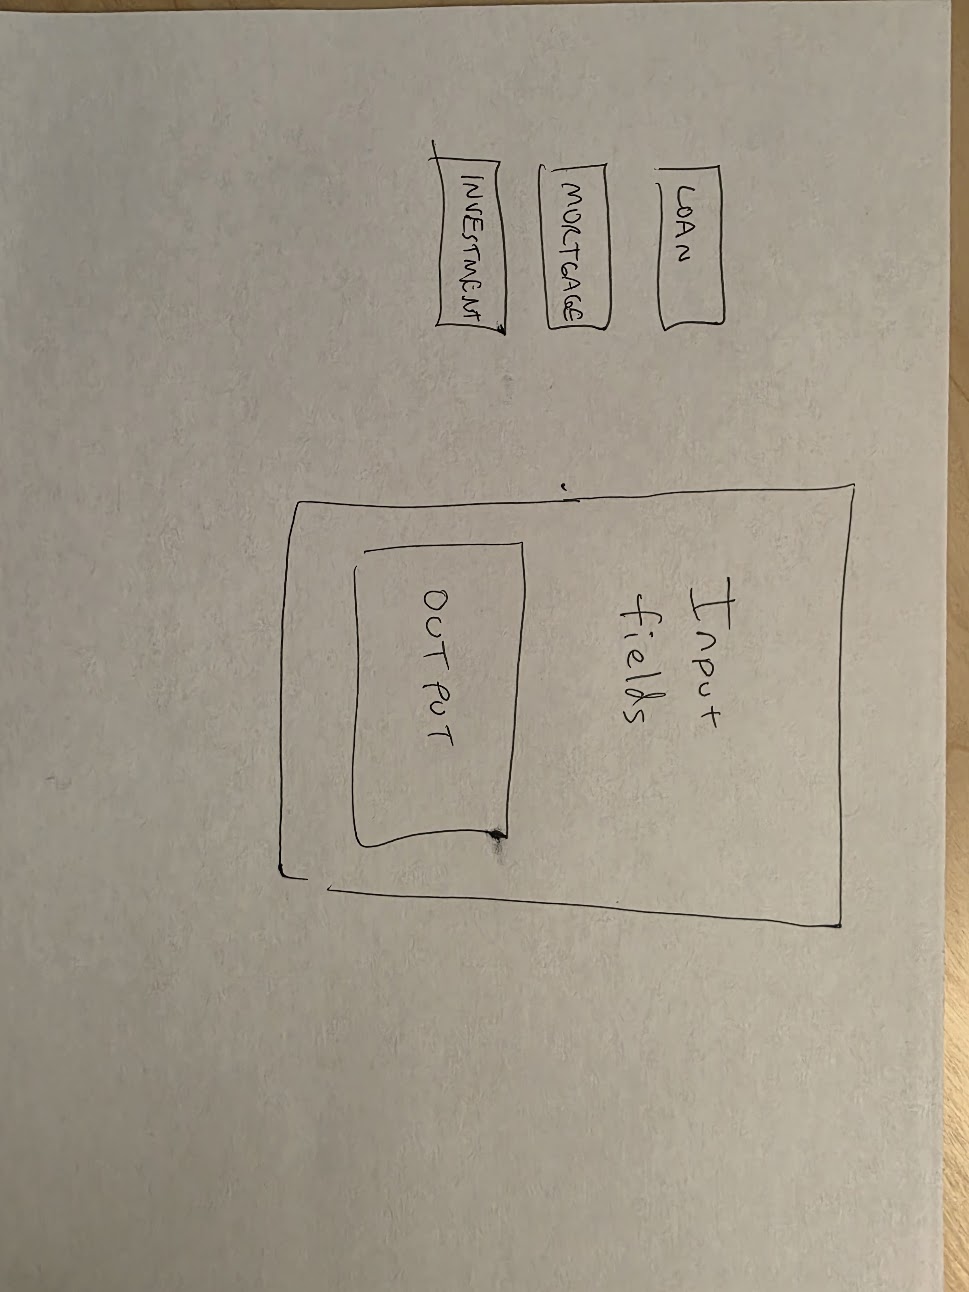 LOAN
MORTGAGE
INVESTMENT
Input
fields
OUTPUT